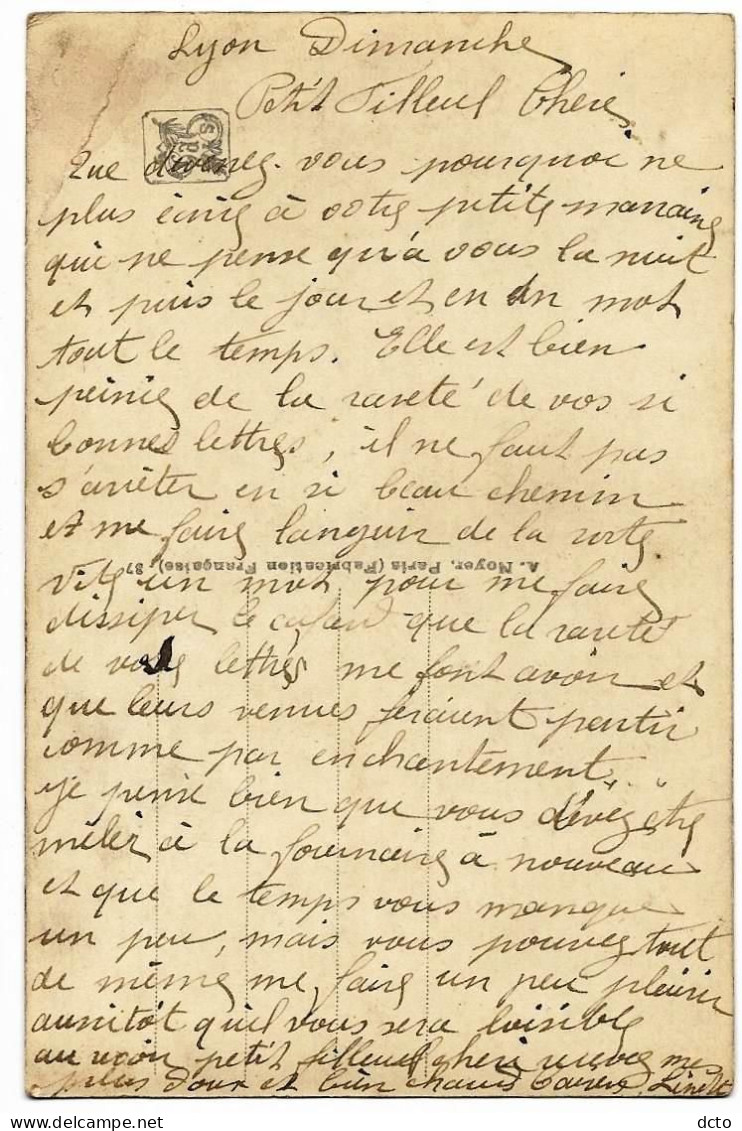 Lyon Dimanche
Petit Filleul Cheri,
Que devenez-vous pourquoi ne
plus écrire à votre petite marraine
qui ne pense qu'à vous la nuit
et puis le jour et en un mot
tout le temps. Elle est bien
peinée de la rareté de vos si
bonnes lettres, il ne faut pas
s'arrêter en si beau chemin
et me faire languir de la sorte
A. Noyer, Paris (Fabrication Française) 37
Vite un mot pour me faire
dissiper le cafard que la rareté
de vos lettres me font avoir et
que leurs venues feraient partir
comme par enchantement...
Je pense bien que vous devez être
mêler à la fournaise à nouveau
et que le temps vous manque
un peu, mais vous pouvez tout
de même me faire un peu plaisir
aussitôt qu'il vous sera loisible
au revoir petit filleul cheri recevez mes
plus doux et bien chauds baisers, Linette